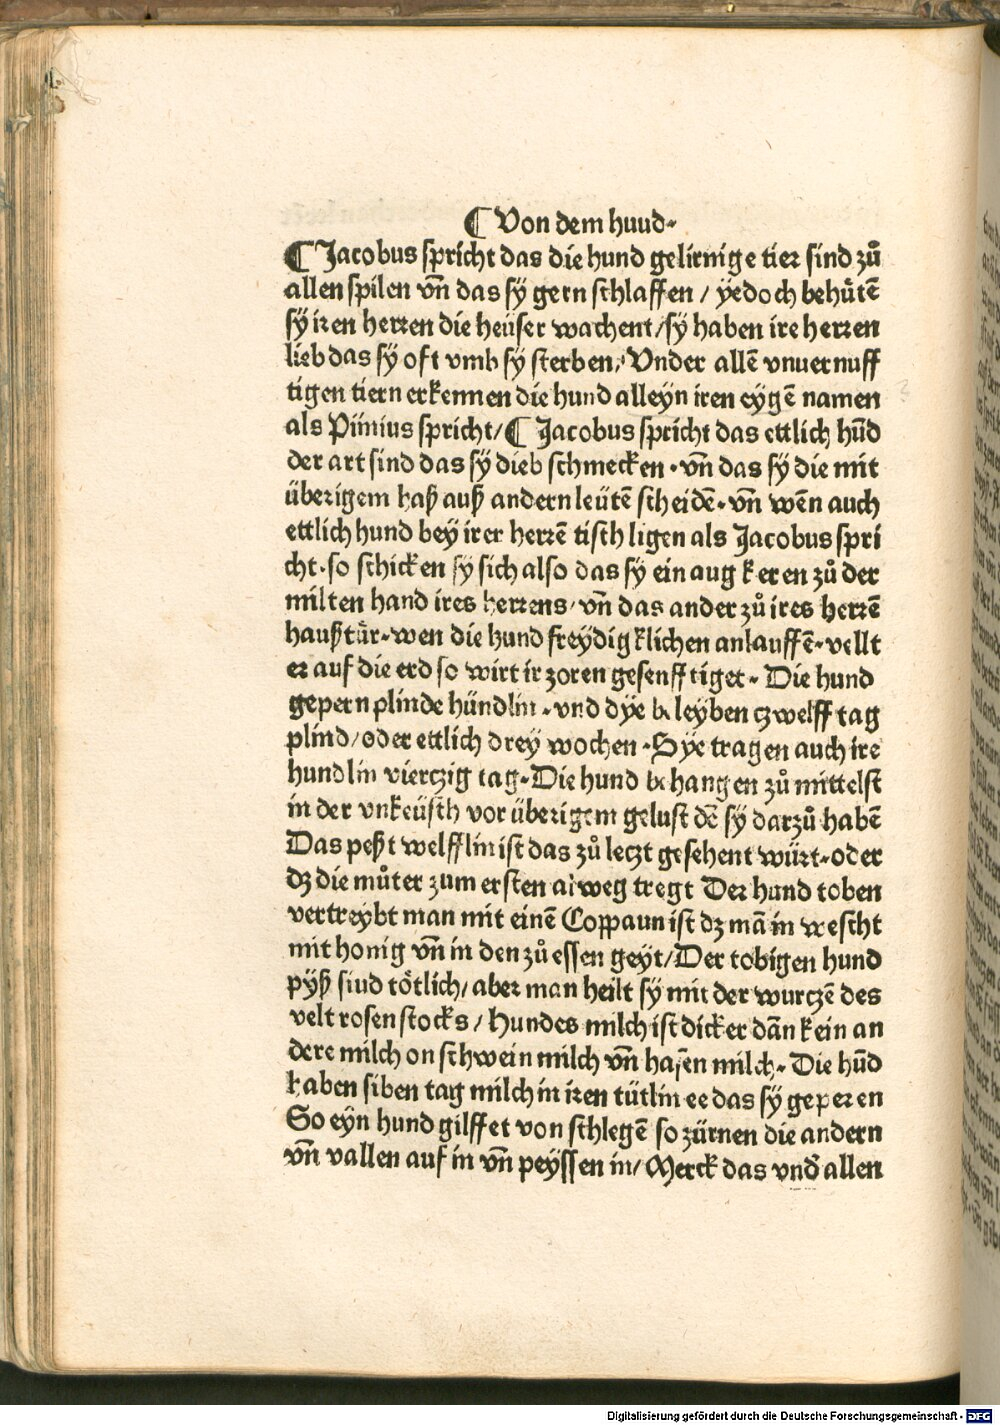 ¶ Von dem huud.
¶ Jacobus spricht das die hund gelirnige tier sind zů
allen spilen vn̄ das sÿ gern schlaffen / yedoch behůtē
sÿ iren herren die heüser wachent / sÿ haben ire herren
lieb das sÿ oft vmb sÿ sterben / Vnder allē vnuernuff
tigen tiern erkennen die hund alleyn iren eygē namen
als Plinius spricht / ¶ Jacobus spricht das ettlich hūd
der art sind das sÿ dieb schmecken . vn̄ das sÿ die mit
überigem haß auß andern leütē scheidē . vn̄ wēn auch
ettlich hund bey irer herrē tisch ligen als Jacobus spri
cht . so schicken sÿ sich also das sÿ ein aug keren zů der
milten hand ires herrens / vn̄ das ander zů ires herrē
haußtür . wen die hund freydigklichen anlauffē . vellt
er auf die erd so wirt ir zoren gesenfftiget . Die hund
gepern plinde hündlin . vnd dÿe beleyben czwelff tag
plind / oder ettlich drey wochen . Sÿe tragen auch ire
hundlin vierczig tag . Die hund behangen zů mittelst
in der vnkeüsch vor überigem gelust dē sÿ darzů habē
Das peßt welfflin ist das zů leczt gesehent würt . oder
dz die můter zum ersten aiweg tregt Der hund toben
vertreybt man mit einē Coppaun ist dz mā in wescht
mit honig vn̄ in den zů essen geyt / Der tobigen hund
pÿß siud tötlich / aber man heilt sÿ mit der wurczē des
velt rosenstocks / Hundes milch ist dicker dān kein an
dere milch on schwein milch vn̄ hasen milch . Die hūd
haben siben tag milch in iren tütlin ee das sÿ geperen
So eyn hund gilffet von schlegē so zürnen die andern
vn̄ vallen auf in vn̄ peyssen in / Merck das vnd̄ allen
Digitalisierung gefördert durch die Deutsche Forschungsgemeinschaft - DFG